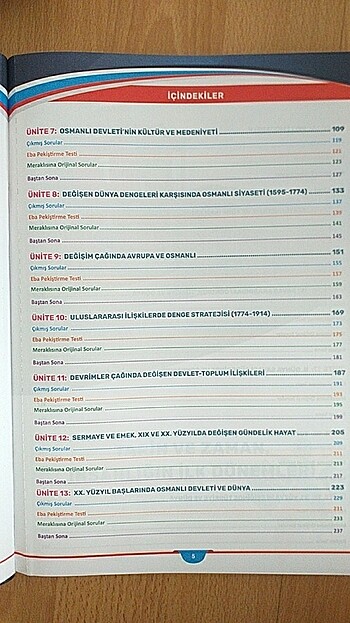 İÇİNDEKİLER
ÜNİTE 7: OSMANLI DEVLETİ'NİN KÜLTÜR VE MEDENİYETİ 109
Çıkmış Sorular 119
Eba Pekiştirme Testi 121
Meraklısına Orijinal Sorular 123
Baştan Sona 127
ÜNİTE 8: DEĞİŞEN DÜNYA DENGELERİ KARŞISINDA OSMANLI SİYASETİ (1595-1774) 133
Çıkmış Sorular 137
Eba Pekiştirme Testi 139
Meraklısına Orijinal Sorular 141
Baştan Sona 145
ÜNİTE 9: DEĞİŞİM ÇAĞINDA AVRUPA VE OSMANLI 151
Çıkmış Sorular 155
Eba Pekiştirme Testi 157
Meraklısına Orijinal Sorular 159
Baştan Sona 163
ÜNİTE 10: ULUSLARARASI İLİŞKİLERDE DENGE STRATEJİSİ (1774-1914) 169
Çıkmış Sorular 173
Eba Pekiştirme Testi 175
Meraklısına Orijinal Sorular 177
Baştan Sona 181
ÜNİTE 11: DEVRİMLER ÇAĞINDA DEĞİŞEN DEVLET-TOPLUM İLİŞKİLERİ 187
Çıkmış Sorular 191
Eba Pekiştirme Testi 193
Meraklısına Orijinal Sorular 195
Baştan Sona 199
ÜNİTE 12: SERMAYE VE EMEK, XIX VE XX. YÜZYILDA DEĞİŞEN GÜNDELİK HAYAT 205
Çıkmış Sorular 209
Eba Pekiştirme Testi 211
Meraklısına Orijinal Sorular 213
Baştan Sona 217
ÜNİTE 13: XX. YÜZYIL BAŞLARINDA OSMANLI DEVLETİ VE DÜNYA 223
Çıkmış Sorular 229
Eba Pekiştirme Testi 231
Meraklısına Orijinal Sorular 233
Baştan Sona 237
5